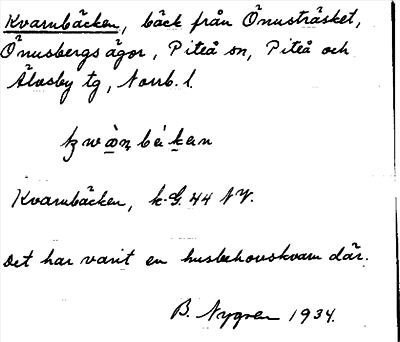 Kvarnbäcken, bäck från Önusträsket,
Önusbergs ägor, Piteå sn, Piteå och
Älvsby tg, Norrb. l.
Kvarnbäcken, k. G. 44 NV.
Det har varit en husbehovskvarn där.
B. Nygren 1934.